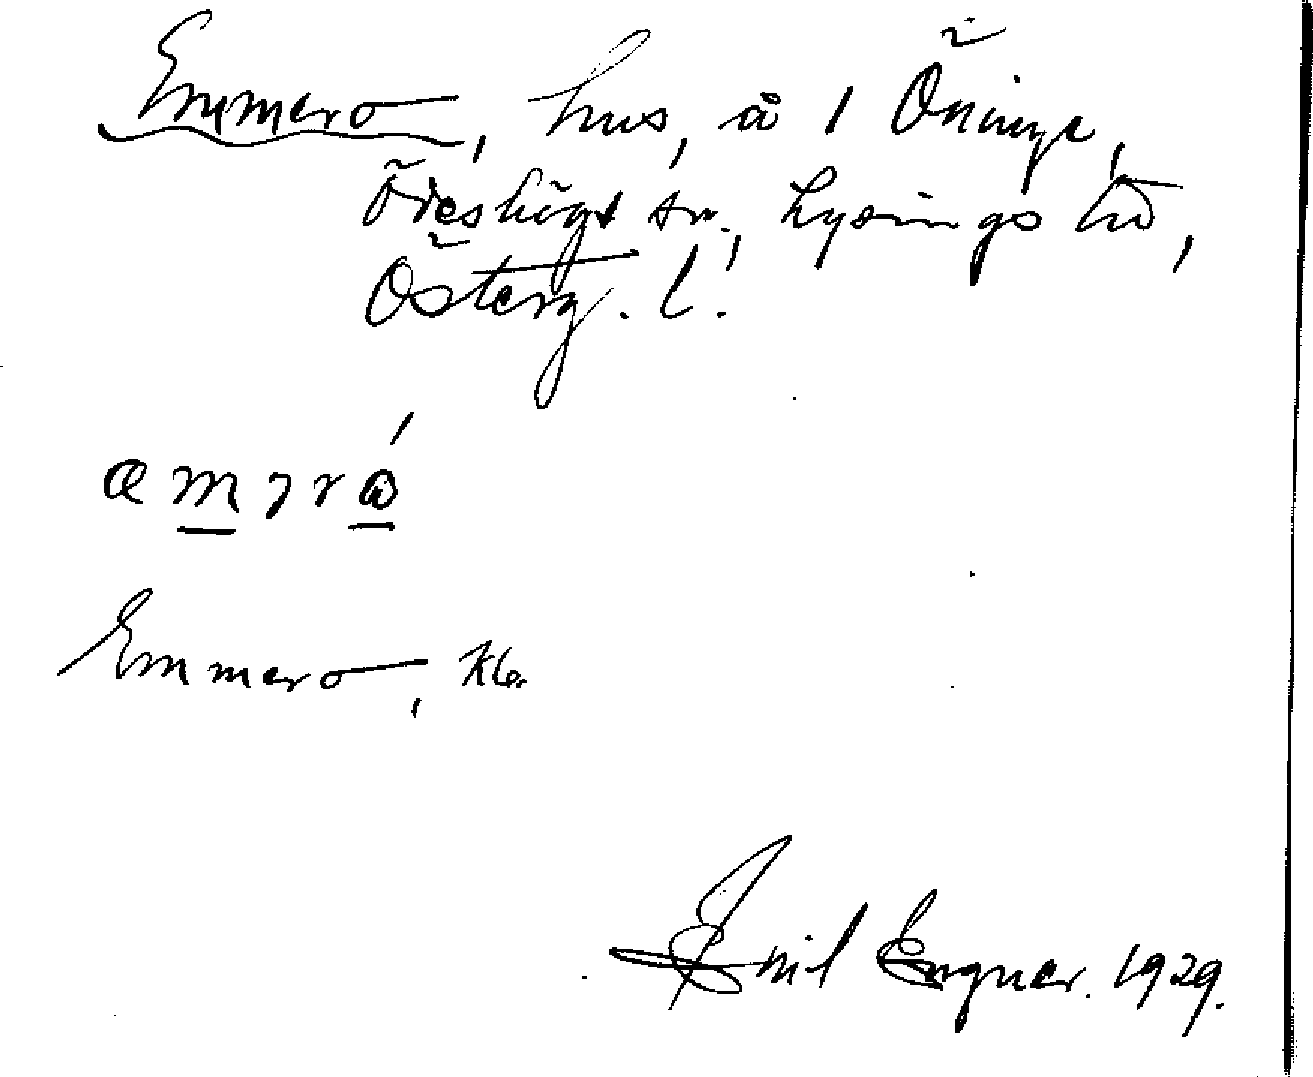 Emmero, hus, å 1 Öninge,
Ödeshögs sn., Lysings hd,
Österg. l.
Emmero,
Emil Engner. 1929.